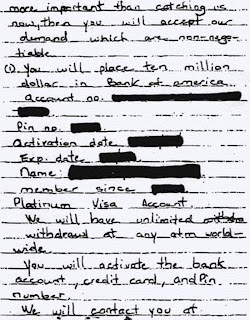 more important than catching us
now, then you will accept our
demand which are non-nego-
tiable
(i). You will place ten million
dollar in Bank of america
account no.
Pin no.
Activation date,
Exp. date
Name:
member since
Platinum Visa Account
We will have unlimited
withdrawl at any atm world-
wide
You will activate the bank
account, credit card, and Pin
number.
We will contact you at